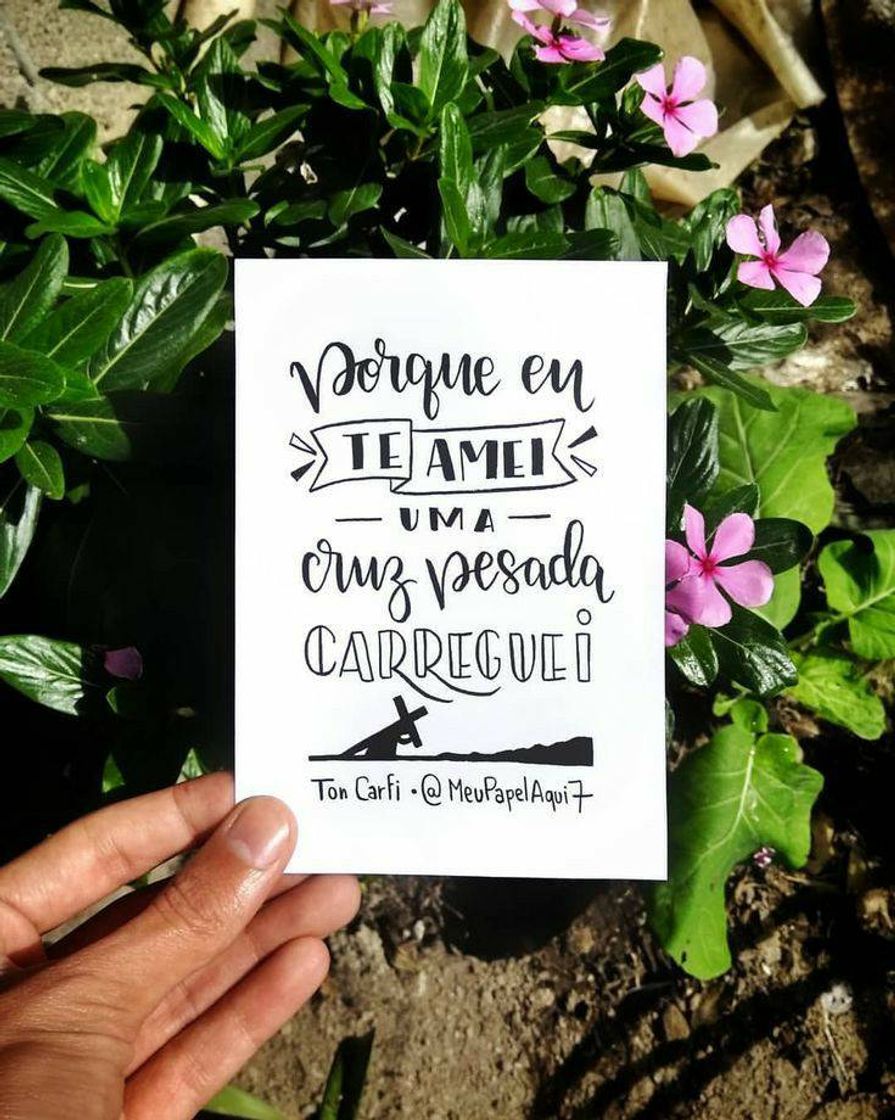 Porque eu
TE AMEI
UMA
cruz pesada
CARREGUEI
Ton Carfi • @MeuPapelAqui7